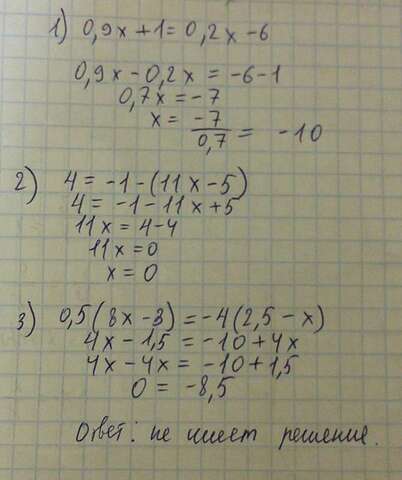 1) 0,9x + 1 = 0,2x - 6
0,9x - 0,2x = -6 - 1
0,7x = -7
x = -7/0,7 = -10
2) 4 = -1 - (11x - 5)
4 = -1 - 11x + 5
11x = 4 - 4
11x = 0
x = 0
3) 0,5(8x - 3) = -4(2,5 - x)
4x - 1,5 = -10 + 4x
4x - 4x = -10 + 1,5
0 = -8,5
Ответ: не имеет решения.